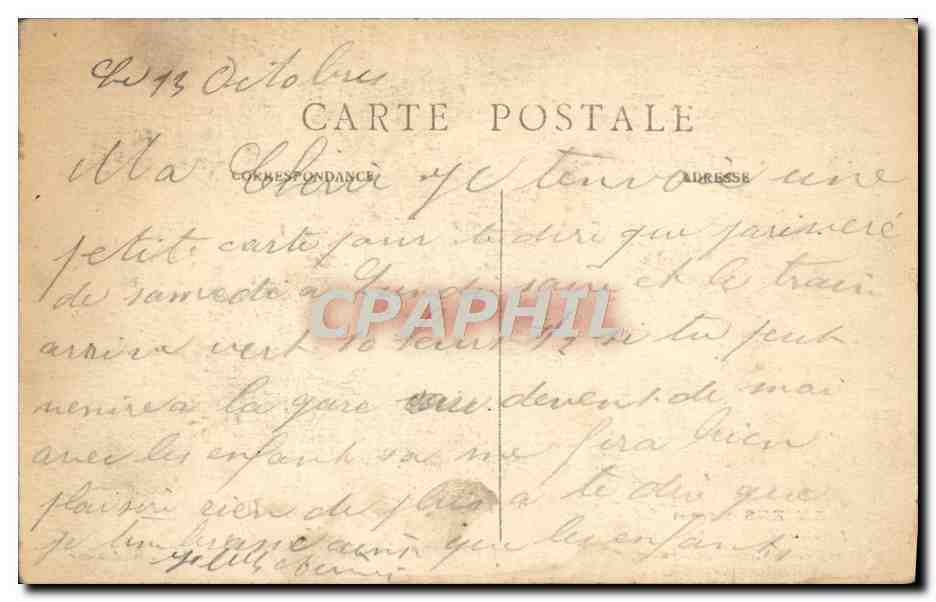 Le 13 Octobre
CARTE POSTALE
CORRESPONDANCE ADRESSE
Ma Cherie Je tenvoie une
petite carte pour te dire que jariveré
de samedi a Lundi soir et le train
arrive vert 10 heurs 1/2 si tu peut
venire a la gare au devent de moi
avec les enfant sa me fera bien
plaisire rien de plus a te dire que
je tembrasse ainsi que les enfants
CPAPHIL